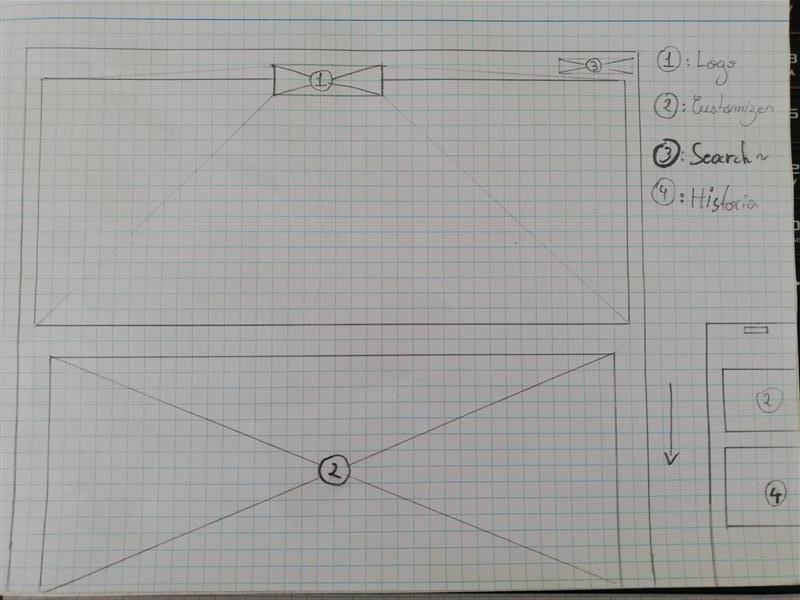 1
3
1 : Logo
2 : Customizer
3 : Search~
4 : Historia
2
2
4